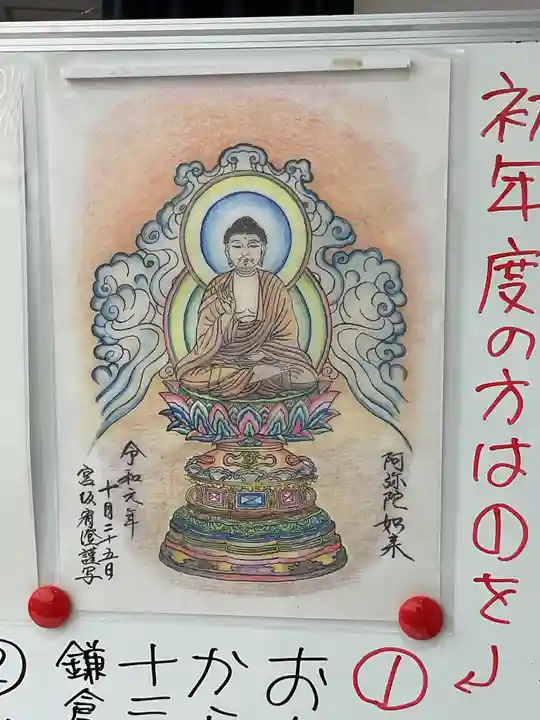 初年度の方はのを
①
お
から
十二
鎌倉
②
阿弥陀如来
令和元年
十月二十五日
宮坂宥澄謹写